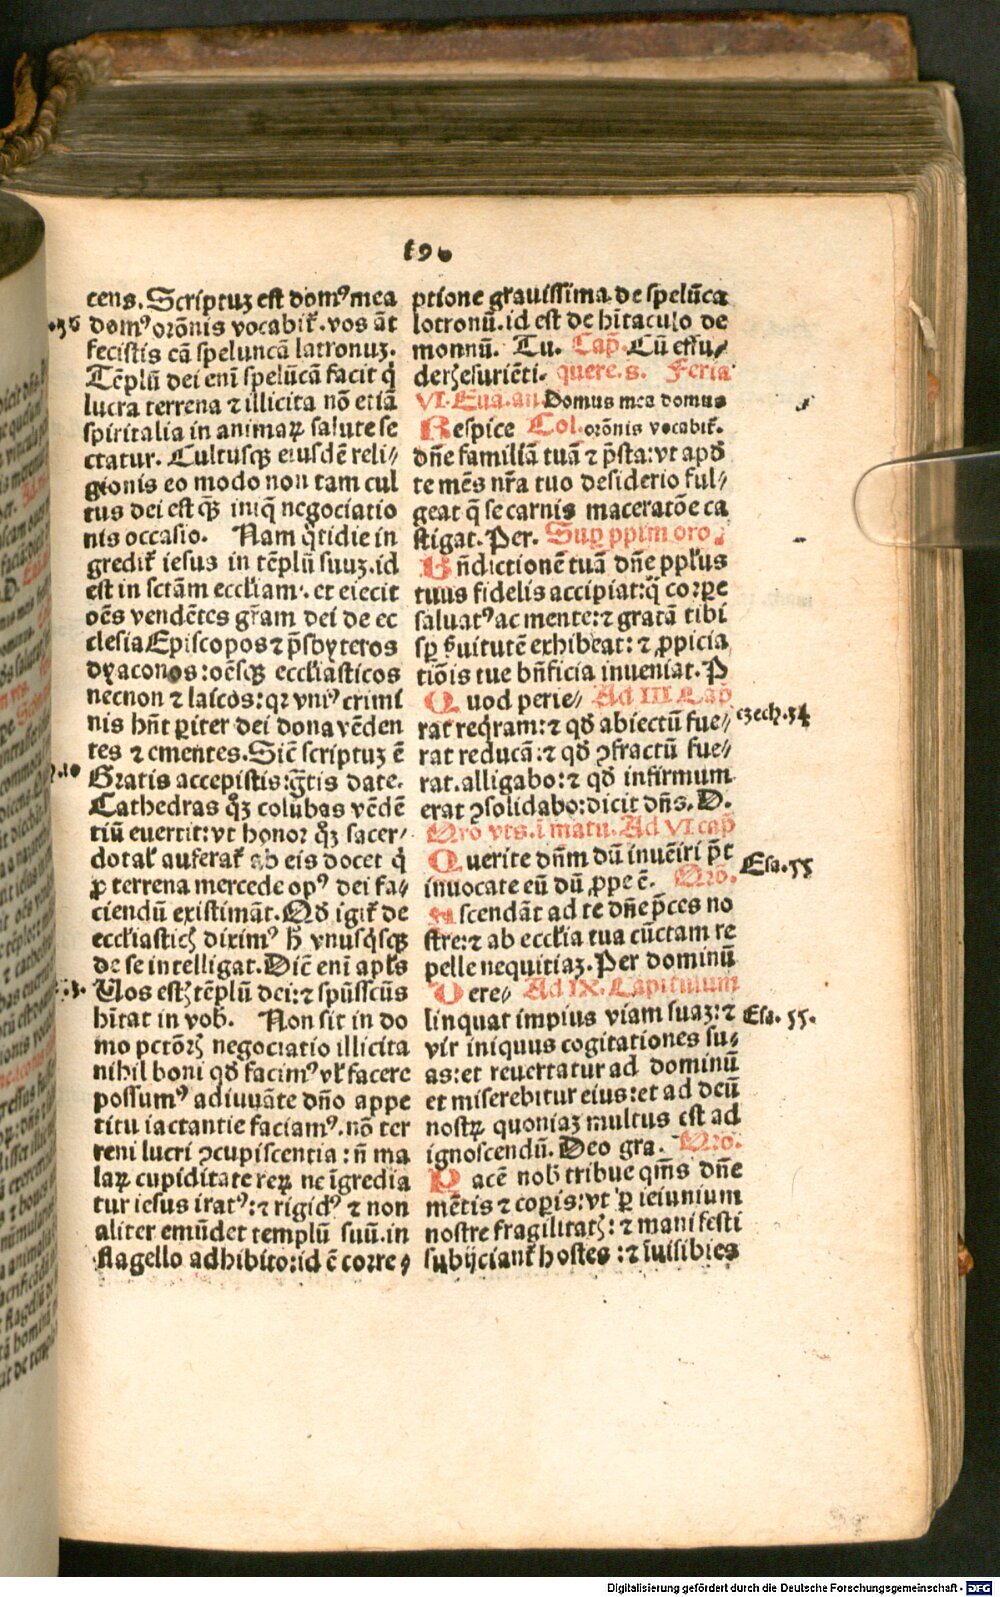 190
cens. Scriptuʒ est domꝰ mea
.56 domꝰ orōnis vocabit̉. vos āt
fecistis eā speluncā latronuʒ.
Tēplū dei enī spelūcā facit q̇
lucra terrena ⁊ illicita nō etiā
spiritalia in animaꝝ salute se
ctatur. Cultusqʒ eiusdē reli⸗
gionis eo modo non tam cul
tus dei est qʒ iniq̄ negociatio
nis occasio. Nam q̄tidie in
gredit̉ iesus in tēplū suuʒ. id
est in sctām eccl̉iam. et eiecit
oēs vendētes gr̄am dei de ec
clesia Episcopos ⁊ p̄sbyteros
dyaconos: oēsqʒ eccl̉iasticos
necnon ⁊ laicos: qꝛ vniꝰ crimi
nis hn̄t ꝑiter dei dona vēden
tes ⁊ emētes. Sic̄ scriptuʒ ē
.10 Gratis accepistis: gr̄tis date.
Cathedras qʒ colūbas vēdē
tiū euertit: vt honoꝛ qʒ sacer⸗
dotal̉ auferat̉ ab eis docet q̇
ꝓ terrena mercede opꝰ dei fa⸗
ciendū existimāt. Qḋ igit̉ de
eccl̉iasticꝭ diximꝰ h̄ vnusq̇sqʒ
de se intelligat. Dic̄ enī apl̉s
.3. Uos estꝭ tēplū dei: ⁊ spūsscūs
hītat in vob̉. Non sit in do
mo pctōꝝ negociatio illicita
nihil boni qḋ facimꝰ vl̉ facere
possumꝰ adiuuāte dn̄o appe
titu iactantie faciamꝰ. nō ter
reni lucri ꝯcupiscentia: n̄ ma
laꝝ cupiditate reꝝ ne īgredia
tur iesus iratꝰ: ⁊ rigidꝰ ⁊ non
aliter emūdet templū suū. in
flagello adhibito: id ē corre⸗
ptione grauissima. de spelūca
lotronū. id est de hītaculo de
monnū. Tu. Cap̄. Cū effu⸗
derꝭ esuriēti. quere. s. Feria
VI. Eua. an. Domus mea domus
Respice Col. orōnis vocabit̉.
dn̄e familiā tuā ⁊ p̄sta: vt apḋ
te mēs nr̄a tuo desiderio ful⸗
geat q̄ se carnis maceratōe ca
stigat. Per. Suꝑ pp̄lm oro.
Bn̄dictionē tuā dn̄e ppl̉us
tuus fidelis accipiat: q̄ corꝑe
saluatꝰ ac mente: ⁊ gratā tibi
sꝑ ẜuitutē exhibeat: ⁊ ꝓpicia
tiōis tue bn̄ficia inueniat. P
Quod perie⸗ Ad III. Cap̄
rat req̇ram: ⁊ qḋ abiectū fue⸗ ezech. 34
rat reducā: ⁊ qḋ ꝯfractū fue⸗
rat. alligabo: ⁊ qḋ infirmum
erat ꝯsolidabo: dicit dn̄s. D.
Oro vts. ī matu. Ad VI cap̄
Querite dn̄m dū inuēiri p̄t Esa. 55
inuocate eū dū ꝓpe ē. Oro.
Ascendāt ad te dn̄e p̄ces no
stre: ⁊ ab eccl̉ia tua cūctam re
pelle nequitiaʒ. Per dominū
Dere⸗ Ad IX. Capitulum
linquat impius viam suaʒ: ⁊ Esa. 55.
vir iniquus cogitationes su⸗
as: et reuertatur ad dominū
et miserebitur eius: et ad deū
nostꝝ quoniaʒ multus est ad
ignoscendū. Deo gra. Oro.
Pacē nob̉ tribue qm̄s dn̄e
mētis ⁊ coꝑis: vt ꝑ ieiunium
nostre fragilitatꝭ: ⁊ manifesti
subijciant̉ hostes: ⁊ īuisibies
Digitalisierung gefördert durch die Deutsche Forschungsgemeinschaft - DFG